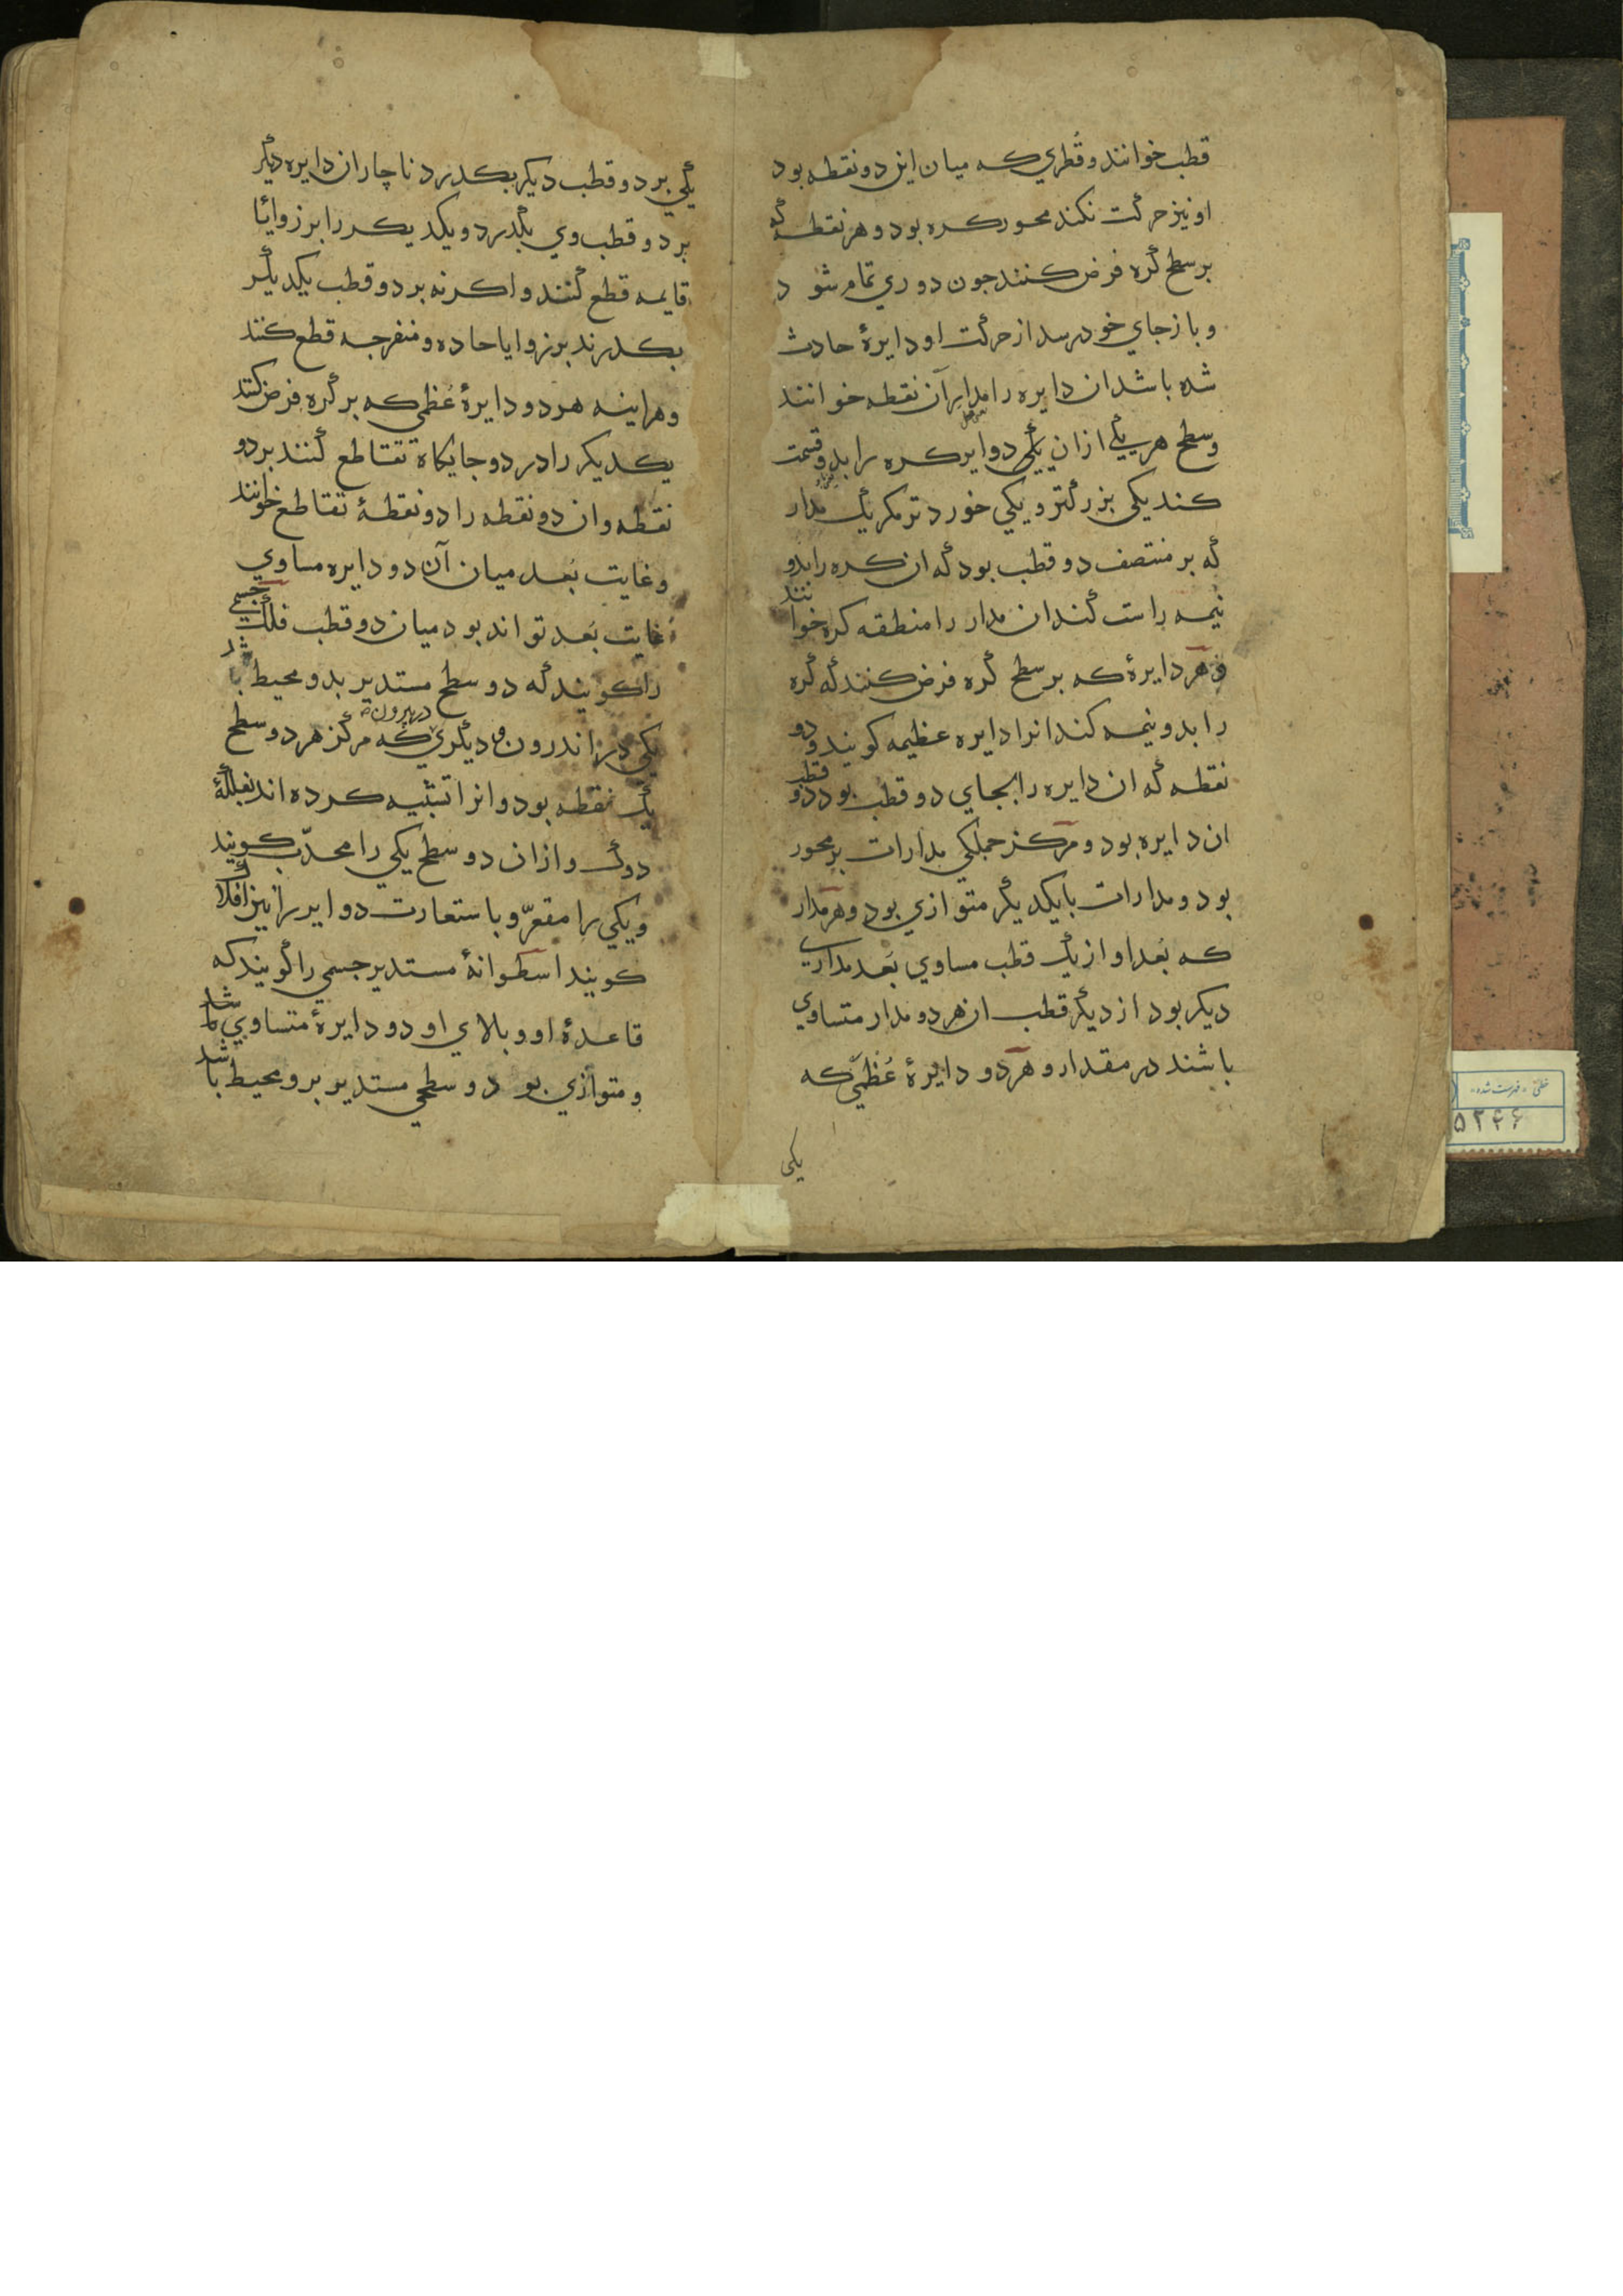 قطب خوانند و قُطري كه ميان اين دو نقطه بود
او نيز حركت نكند محور كره بود و هر نقطه كه
بر سطح كره فرض كنند جون دوري تمام شود
و باز جاي خود رسد از حركت او دايرهٔ حادث
شده باشد ان دايره را مدار آن نقطه خوانند
و سطح هر يكي ازان دواير كره را بدو قسمت
كند يكي بزركتر و يكي خوردتر مكر يك مدار
كه بر منتصف دو قطب بود كه ان كره را بدو
نيمه راست كند ان مدار را منطقه كره خوانند
و هر دايرهٔ كه بر سطح كره فرض كنند كه كره
را بدو نيمه كند انرا دايره عظيمه كويند و دو
نقطه كه ان دايره را بجاي دو قطب بود دو قطب
ان دايره بود و مركز جملكي مدارات بر محور
بود و مدارات با يكديكر متوازي بود و هر مدار
كه بُعد او از يك قطب مساوي بُعد مداري
ديكر بود از ديكر قطب ان هر دو مدار متساوي
باشند در مقدار و هر دو دايرهٔ عُظمي كه
يكى
يكي بر دو قطب ديكر بكدرد ناچار ان دايره ديكر
بر دو قطب وي بكدرد و يكديكر را بر زوايا
قايمه قطع كنند و اكر نه بر دو قطب يكديكر
بكدرند بر زوايا حاده و منفرجه قطع كنند
و هراينه هر دو دايرهٔ عُظمي كه بر كره فرض كنند
يكديكر را در دو جايكاه تقاطع كنند بر دو
نقطه و ان دو نقطه را دو نقطهٔ تقاطع خوانند
و غايت بُعد ميان آن دو دايره مساوي
غايت بُعد تواند بود ميان دو قطب فلك جسمي
را كويند كه دو سطح مستدير بدو محيط باشد
يكي در اندرون و ديكري در بيرون كه مركز هر دو سطح
يك نقطه بود و انرا تشبيه كرده اند بفلكهٔ
دوك و ازان دو سطح يكي را محدّب كويند
و يكي را مقعّر و باستعارت دواير را نيز افلاك
كويند اسطوانهٔ مستدير جسمي را كويند كه
قاعدهٔ او و بالاي او دو دايرهٔ متساوي باشد
و متوازي بود و سطحي مستدير برو محيط باشد
خطی - فهرست شده -
۵۲۴۶